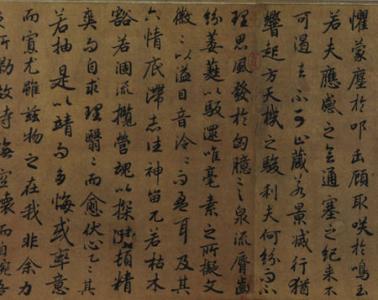 懼蒙塵於叩缶顧取咲於鳴玉
若夫應感之會通塞之紀來不
可遏去不可止藏若景滅行猶
響起方天機之駿利夫何紛而不
理思風發於胸臆言泉流脣齒
紛葳蕤以馺遝唯毫素之所擬文
徽〻以溢目音泠〻而盈耳及其
六情底滯志往神留兀若枯木
豁若涸流攬營魂以探賾頓精
爽而自求理翳〻而愈伏思乙〻其
若抽是以情而多悔或率意
而寡尤雖茲物之在我非余力
之所勠故時撫空懷而自惋吾